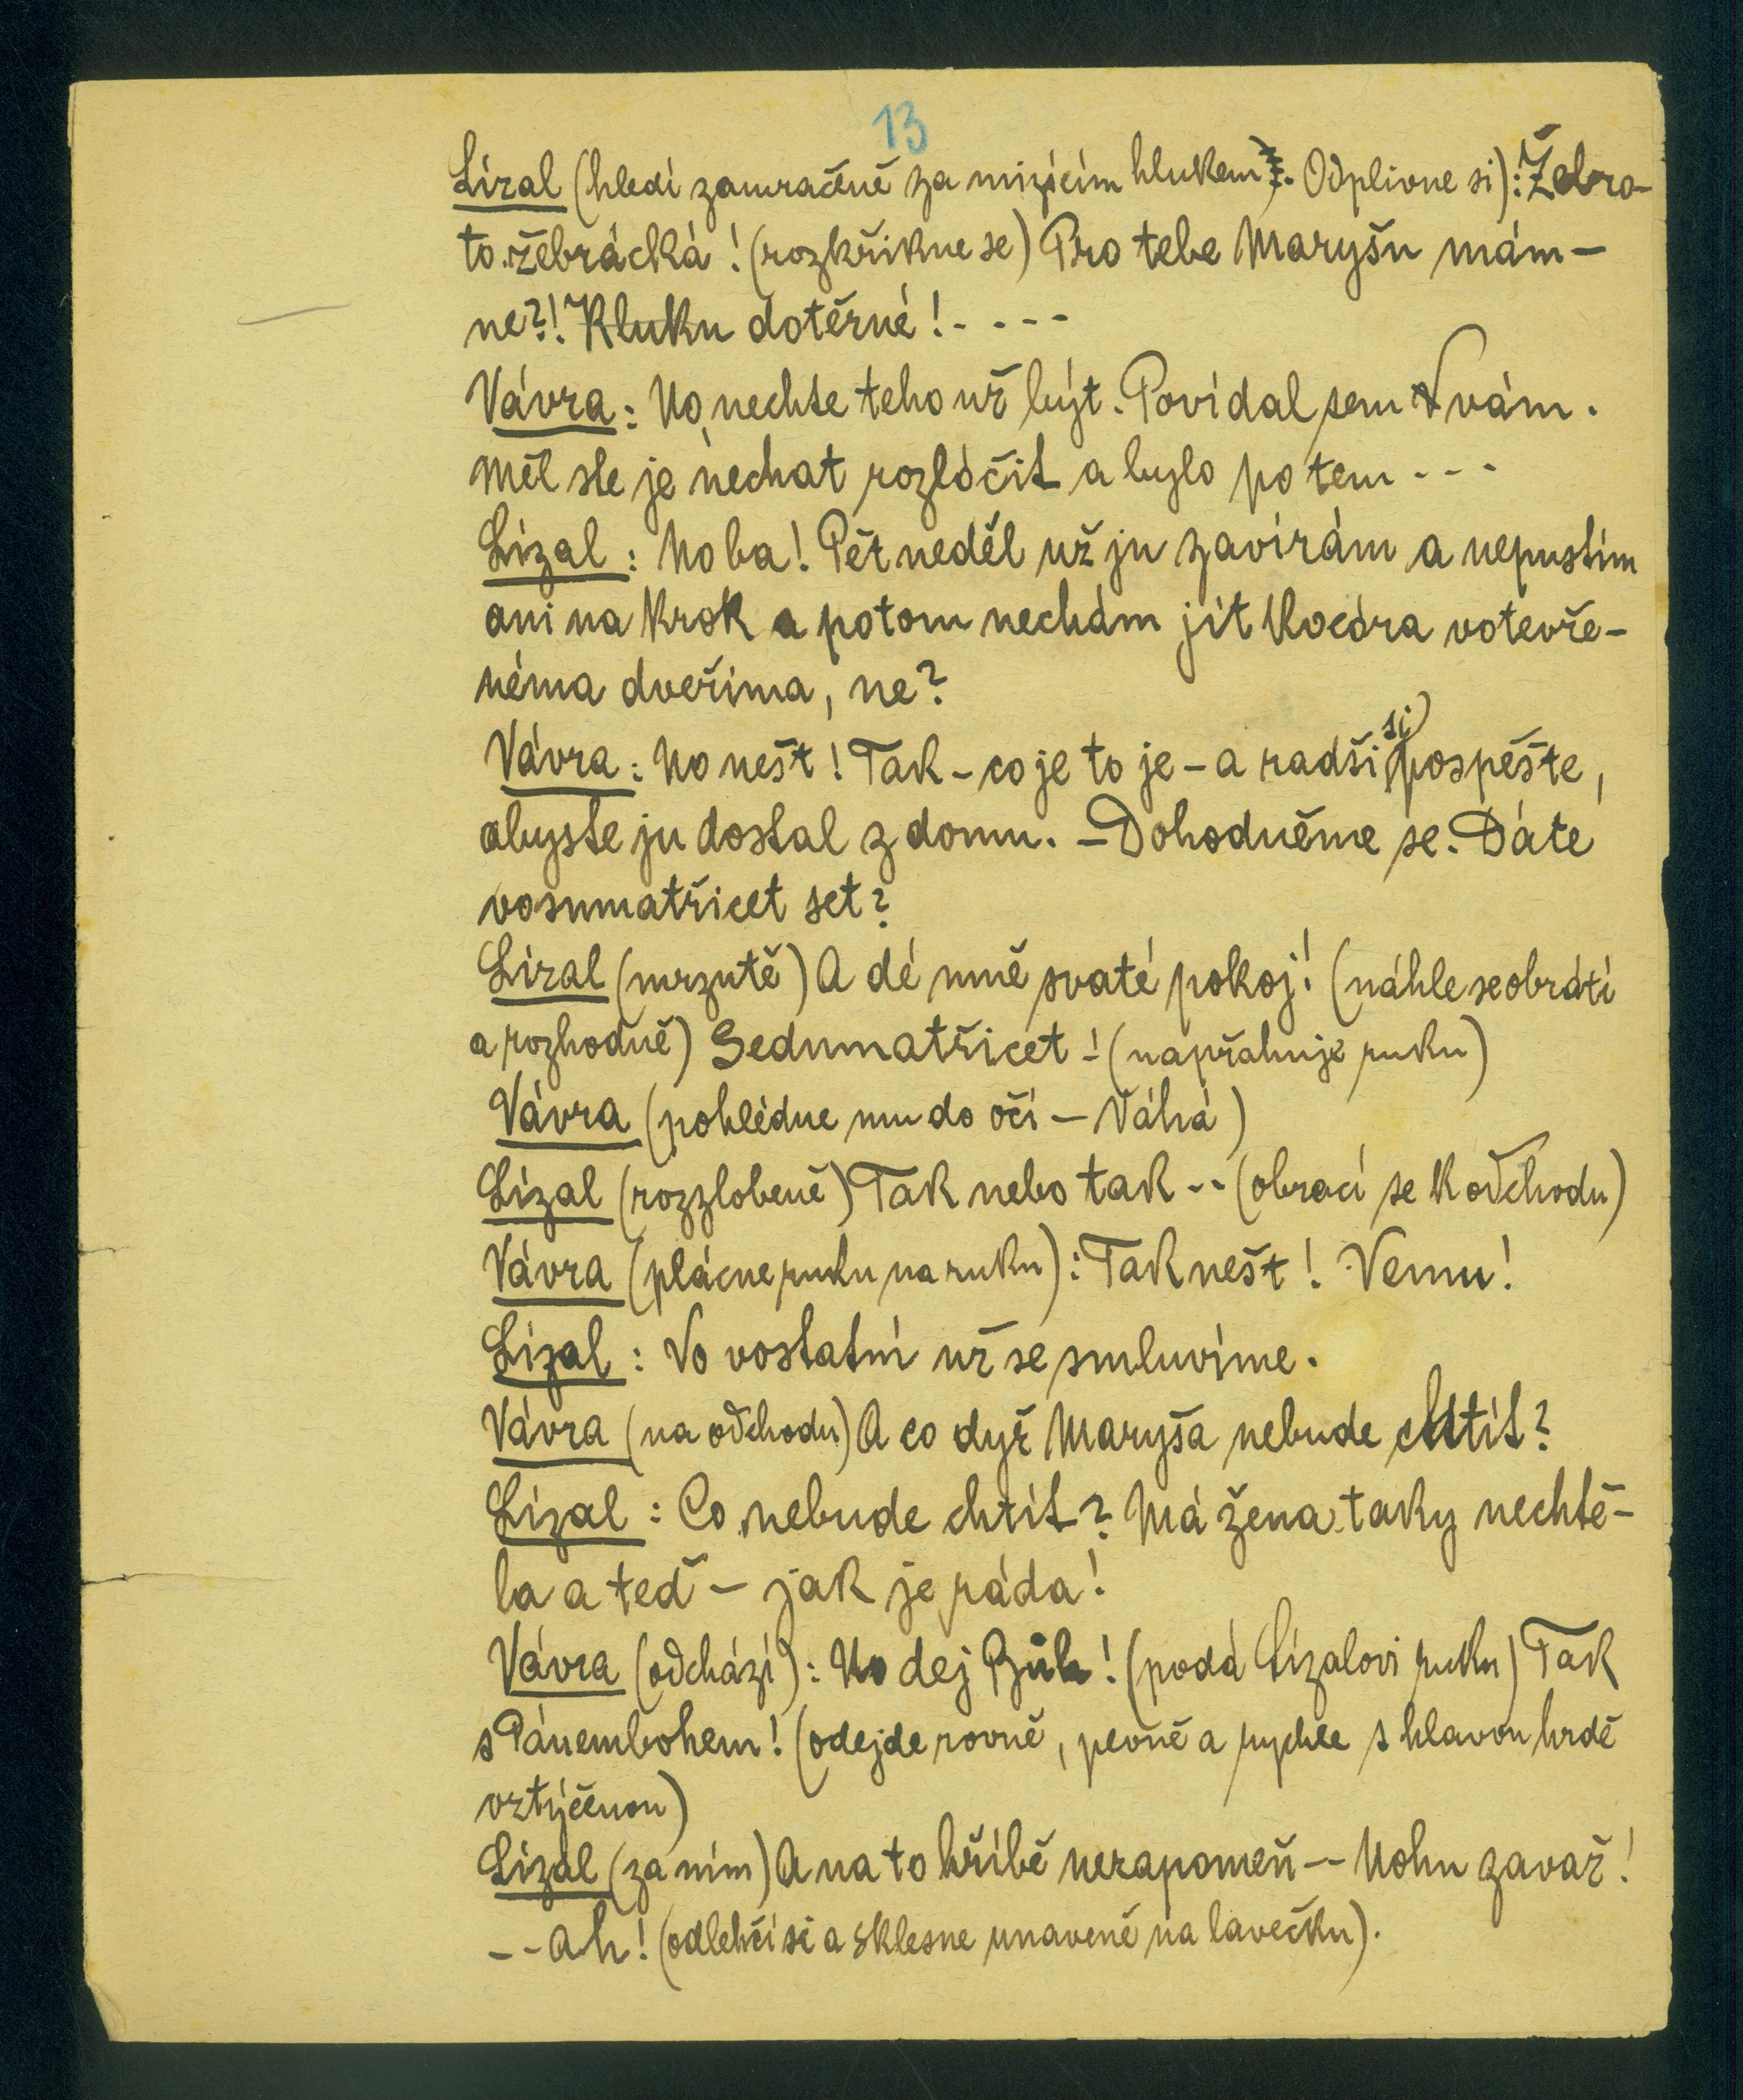 13
Lízal (hledí zamračeně za mizícím hlukem). Odplivne si): Žebro-
to žebrácká! (rozkřikne se) Pro tebe Maryšu mám -
ne?! Kluku dotěrné! - - - -
Vávra: No, nechte teho už být. Povídal sem vám.
Měl ste je nechat rozlóčit a bylo po tem - - -
Lízal: No ba! Pět neděl už ju zavírám a nepustím
ani na krok a potom nechám jít kocóra votevře-
néma dveřima, ne?
Vávra: No nešt! Tak - co je to je - a radši si pospěšte,
abyste ju dostal z domu. - Dohodněme se. Dáte
vosumatřicet set?
Lízal (mrzutě) A dé mně svaté pokoj! (náhle se obrátí
a rozhodně) Sedumatřicet! (napřahuje ruku)
Vávra (pohlédne mu do očí - Váhá)
Lízal (rozzlobeně) Tak nebo tak -- (obrací se k odchodu)
Vávra (plácne ruku na ruku): Tak nešt! Vemu!
Lízal: Vo vostatní už se smluvíme.
Vávra (na odchodu) A co dyž Maryša nebude chtít?
Lízal: Co nebude chtít? Má žena taky nechtě-
la a teď - jak je ráda!
Vávra (odchází): No dej Bůh! (podá Lízalovi ruku) Tak
s Pánembohem! (odejde rovně, pevně a rychle s hlavou hrdě
vztýčenou)
Lízal (za ním) A na to hříbě nezapomeň -- Nohu zavař!
-- Ah! (odlehčí si a sklesne unaveně na lavečku).